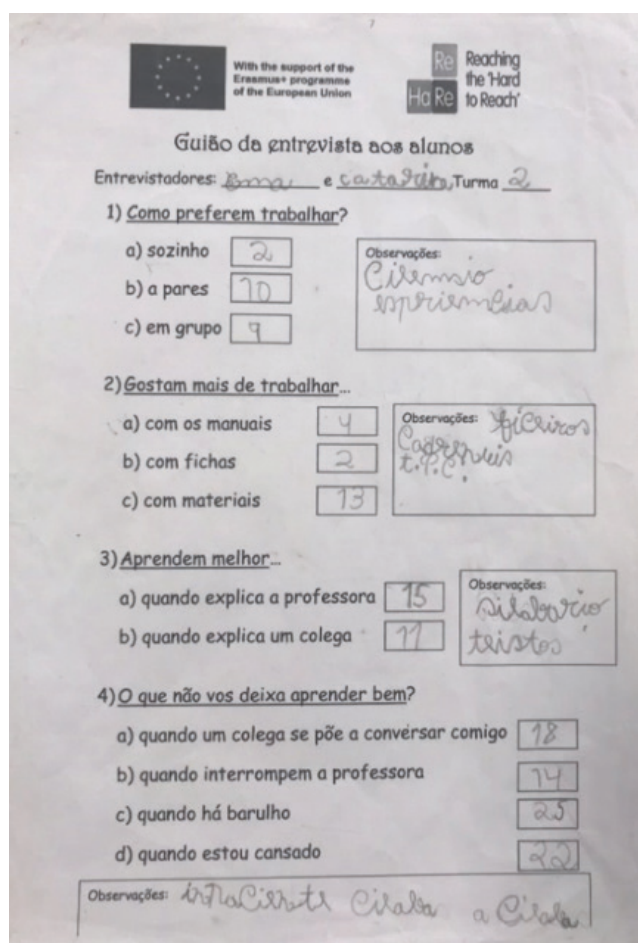 With the support of the
Erasmus+ programme
of the European Union
Re Reaching
the 'Hard
HaRe to Reach'
Guião da entrevista aos alunos
Entrevistadores: e catarina, Turma 2
1) Como preferem trabalhar?
a) sozinho 2
b) a pares 10
c) em grupo 9
Observações:
Cilemsio
espriemsias
2) Gostam mais de trabalhar...
a) com os manuais 4
b) com fichas 2
c) com materiais 13
Observações: ficeiros
t.P.C.
3) Aprendem melhor...
a) quando explica a professora 15
b) quando explica um colega 11
Observações:
silabario
teistos
4) O que não vos deixa aprender bem?
a) quando um colega se põe a conversar comigo 18
b) quando interrompem a professora 14
c) quando há barulho 25
d) quando estou cansado 22
Observações: Cilaba a Cilaba